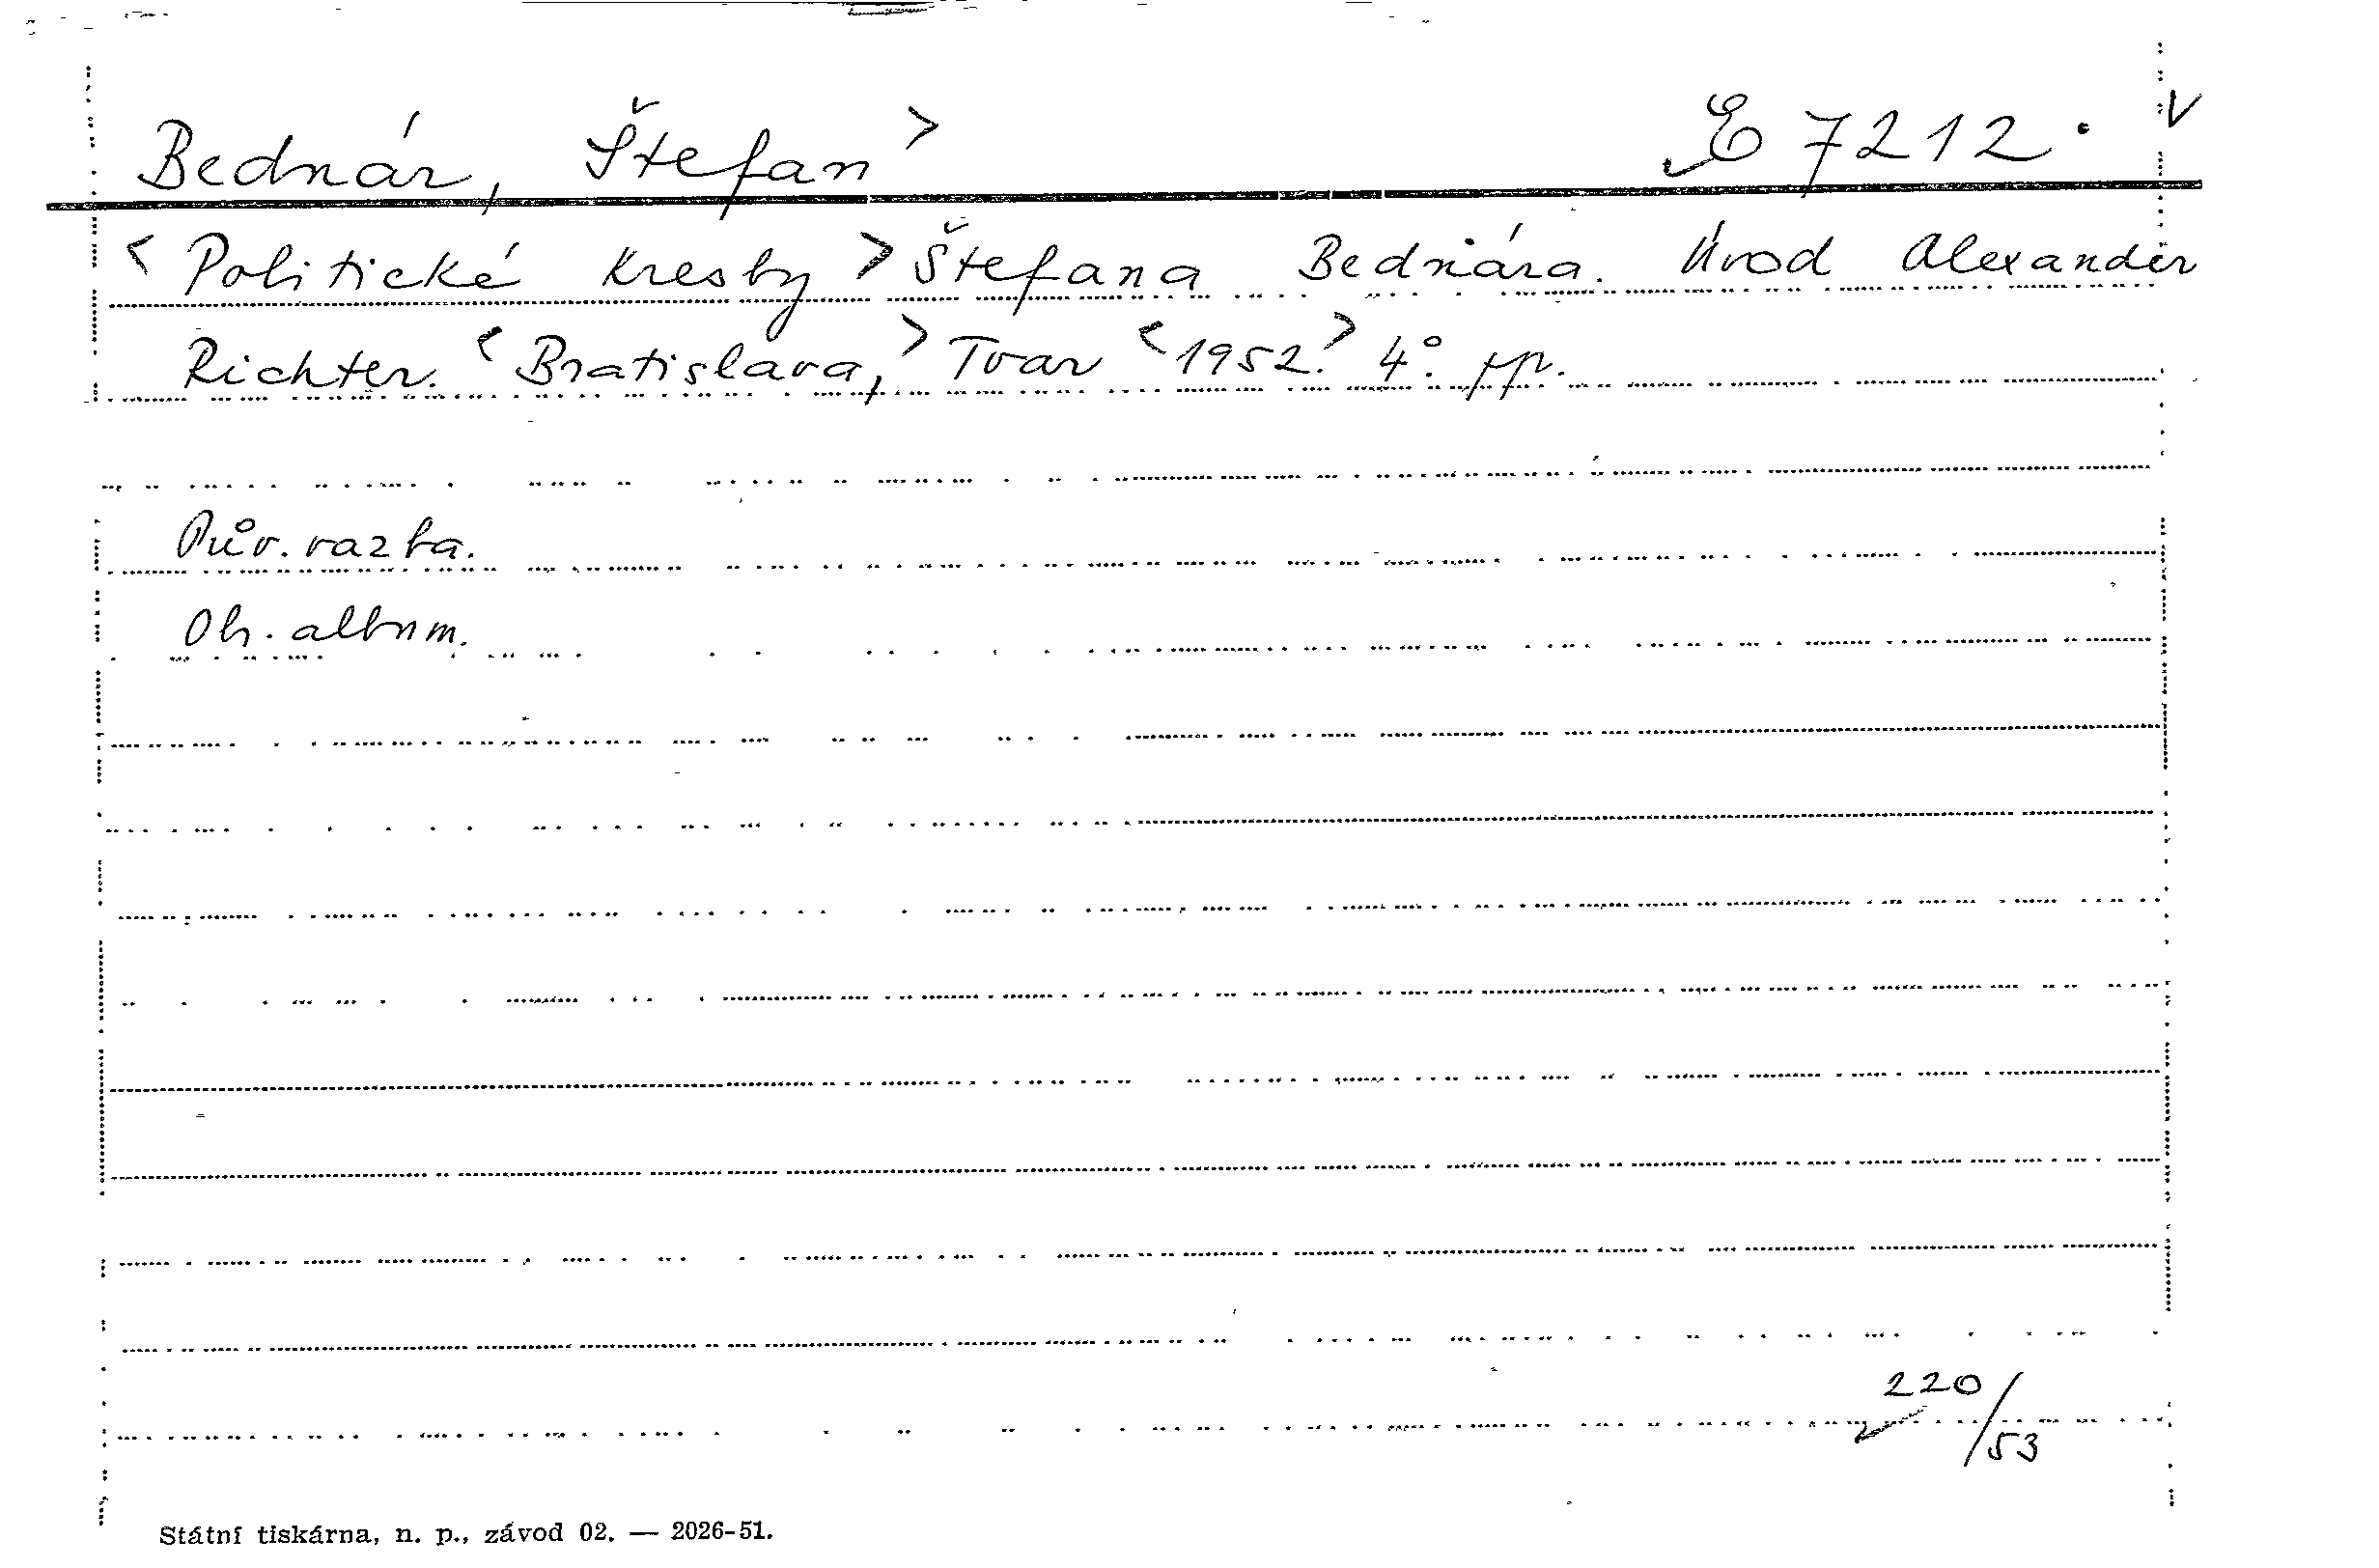 Bednár, Štefan> E 7212.
<Politické kresby> Štefana Bednára. Úvod Alexander
Richter. <Bratislava,> Tvar <1952.> 4°. pp.
Pův. vazba.
Ob. album.
220/53
Státní tiskárna, n. p., závod 02. — 2026-51.